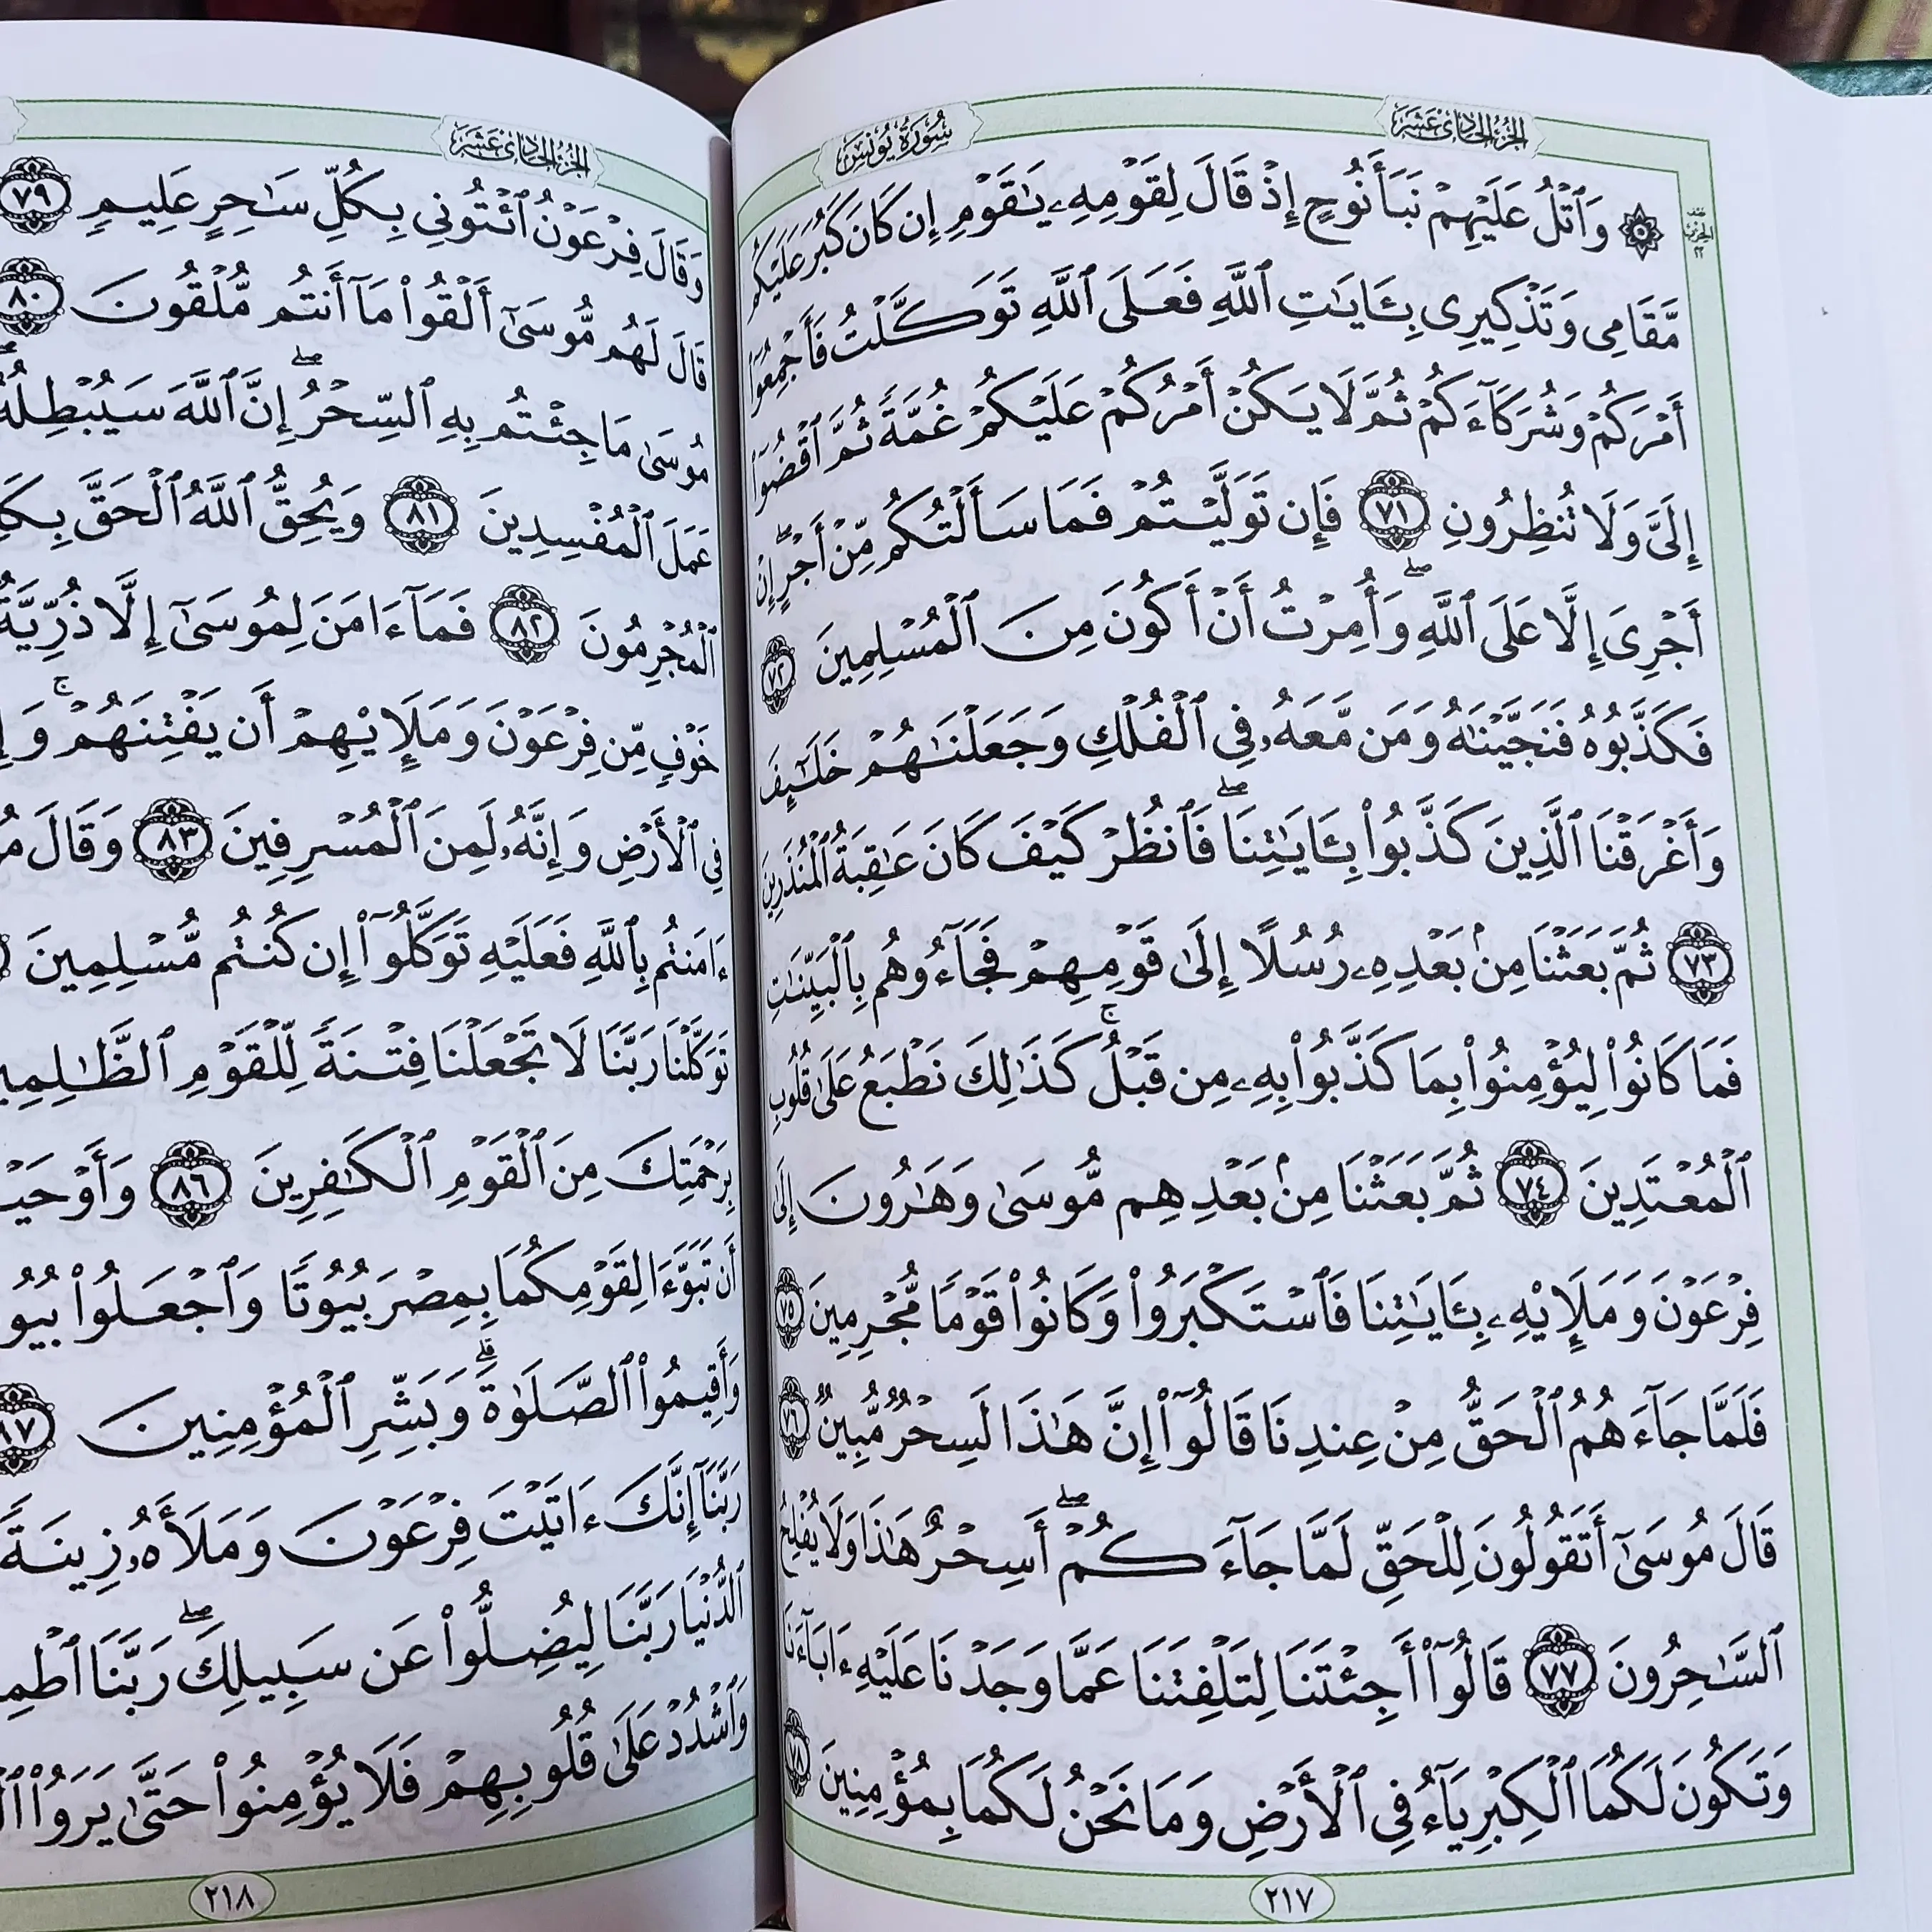 الجزء الحادي عشر
سورة يونس
نصف
الحزب
٢٢
۞ وَٱتۡلُ عَلَيۡهِمۡ نَبَأَ نُوحٍ إِذۡ قَالَ لِقَوۡمِهِۦ يَٰقَوۡمِ إِن كَانَ كَبُرَ عَلَيۡكُم
مَّقَامِي وَتَذۡكِيرِي بِـَٔايَٰتِ ٱللَّهِ فَعَلَى ٱللَّهِ تَوَكَّلۡتُ فَأَجۡمِعُوٓاْ
أَمۡرَكُمۡ وَشُرَكَآءَكُمۡ ثُمَّ لَا يَكُنۡ أَمۡرُكُمۡ عَلَيۡكُمۡ غُمَّةٗ ثُمَّ ٱقۡضُوٓاْ
إِلَيَّ وَلَا تُنظِرُونِ ٧١ فَإِن تَوَلَّيۡتُمۡ فَمَا سَأَلۡتُكُم مِّنۡ أَجۡرٍۖ إِنۡ
أَجۡرِيَ إِلَّا عَلَى ٱللَّهِۖ وَأُمِرۡتُ أَنۡ أَكُونَ مِنَ ٱلۡمُسۡلِمِينَ ٧٢
فَكَذَّبُوهُ فَنَجَّيۡنَٰهُ وَمَن مَّعَهُۥ فِي ٱلۡفُلۡكِ وَجَعَلۡنَٰهُمۡ خَلَٰٓئِفَ
وَأَغۡرَقۡنَا ٱلَّذِينَ كَذَّبُواْ بِـَٔايَٰتِنَاۖ فَٱنظُرۡ كَيۡفَ كَانَ عَٰقِبَةُ ٱلۡمُنذَرِينَ
٧٣ ثُمَّ بَعَثۡنَا مِنۢ بَعۡدِهِۦ رُسُلًا إِلَىٰ قَوۡمِهِمۡ فَجَآءُوهُم بِٱلۡبَيِّنَٰتِ
فَمَا كَانُواْ لِيُؤۡمِنُواْ بِمَا كَذَّبُواْ بِهِۦ مِن قَبۡلُۚ كَذَٰلِكَ نَطۡبَعُ عَلَىٰ قُلُوبِ
ٱلۡمُعۡتَدِينَ ٧٤ ثُمَّ بَعَثۡنَا مِنۢ بَعۡدِهِم مُّوسَىٰ وَهَٰرُونَ إِلَىٰ
فِرۡعَوۡنَ وَمَلَإِيْهِۦ بِـَٔايَٰتِنَا فَٱسۡتَكۡبَرُواْ وَكَانُواْ قَوۡمٗا مُّجۡرِمِينَ ٧٥
فَلَمَّا جَآءَهُمُ ٱلۡحَقُّ مِنۡ عِندِنَا قَالُوٓاْ إِنَّ هَٰذَا لَسِحۡرٞ مُّبِينٞ ٧٦
قَالَ مُوسَىٰٓ أَتَقُولُونَ لِلۡحَقِّ لَمَّا جَآءَكُمۡۖ أَسِحۡرٌ هَٰذَا وَلَا يُفۡلِحُ
ٱلسَّٰحِرُونَ ٧٧ قَالُوٓاْ أَجِئۡتَنَا لِتَلۡفِتَنَا عَمَّا وَجَدۡنَا عَلَيۡهِ ءَابَآءَنَا
وَتَكُونَ لَكُمَا ٱلۡكِبۡرِيَآءُ فِي ٱلۡأَرۡضِ وَمَا نَحۡنُ لَكُمَا بِمُؤۡمِنِينَ ٧٨
٢١٧
الجزء الحادي عشر
وَقَالَ فِرۡعَوۡنُ ٱئۡتُونِي بِكُلِّ سَٰحِرٍ عَلِيمٖ ٧٩
قَالَ لَهُم مُّوسَىٰٓ أَلۡقُواْ مَآ أَنتُم مُّلۡقُونَ ٨٠
مُوسَىٰ مَا جِئۡتُم بِهِ ٱلسِّحۡرُۖ إِنَّ ٱللَّهَ سَيُبۡطِلُهُۥٓ
عَمَلَ ٱلۡمُفۡسِدِينَ ٨١ وَيُحِقُّ ٱللَّهُ ٱلۡحَقَّ
ٱلۡمُجۡرِمُونَ ٨٢ فَمَآ ءَامَنَ لِمُوسَىٰٓ إِلَّا ذُرِّيَّةٞ
خَوۡفٖ مِّن فِرۡعَوۡنَ وَمَلَإِيْهِمۡ أَن يَفۡتِنَهُمۡۚ
فِي ٱلۡأَرۡضِ وَإِنَّهُۥ لَمِنَ ٱلۡمُسۡرِفِينَ ٨٣ وَقَالَ
ءَامَنتُم بِٱللَّهِ فَعَلَيۡهِ تَوَكَّلُوٓاْ إِن كُنتُم مُّسۡلِمِينَ
تَوَكَّلۡنَا رَبَّنَا لَا تَجۡعَلۡنَا فِتۡنَةٗ لِّلۡقَوۡمِ
بِرَحۡمَتِكَ مِنَ ٱلۡقَوۡمِ ٱلۡكَٰفِرِينَ ٨٦
أَن تَبَوَّءَا لِقَوۡمِكُمَا بِمِصۡرَ بُيُوتٗا وَٱجۡعَلُواْ
وَأَقِيمُواْ ٱلصَّلَوٰةَۗ وَبَشِّرِ ٱلۡمُؤۡمِنِينَ ٨٧
رَبَّنَآ إِنَّكَ ءَاتَيۡتَ فِرۡعَوۡنَ وَمَلَأَهُۥ زِينَةٗ
ٱلدُّنۡيَا رَبَّنَا لِيُضِلُّواْ عَن سَبِيلِكَۖ رَبَّنَا
وَٱشۡدُدۡ عَلَىٰ قُلُوبِهِمۡ فَلَا يُؤۡمِنُواْ حَتَّىٰ يَرَوُاْ
٢١٨